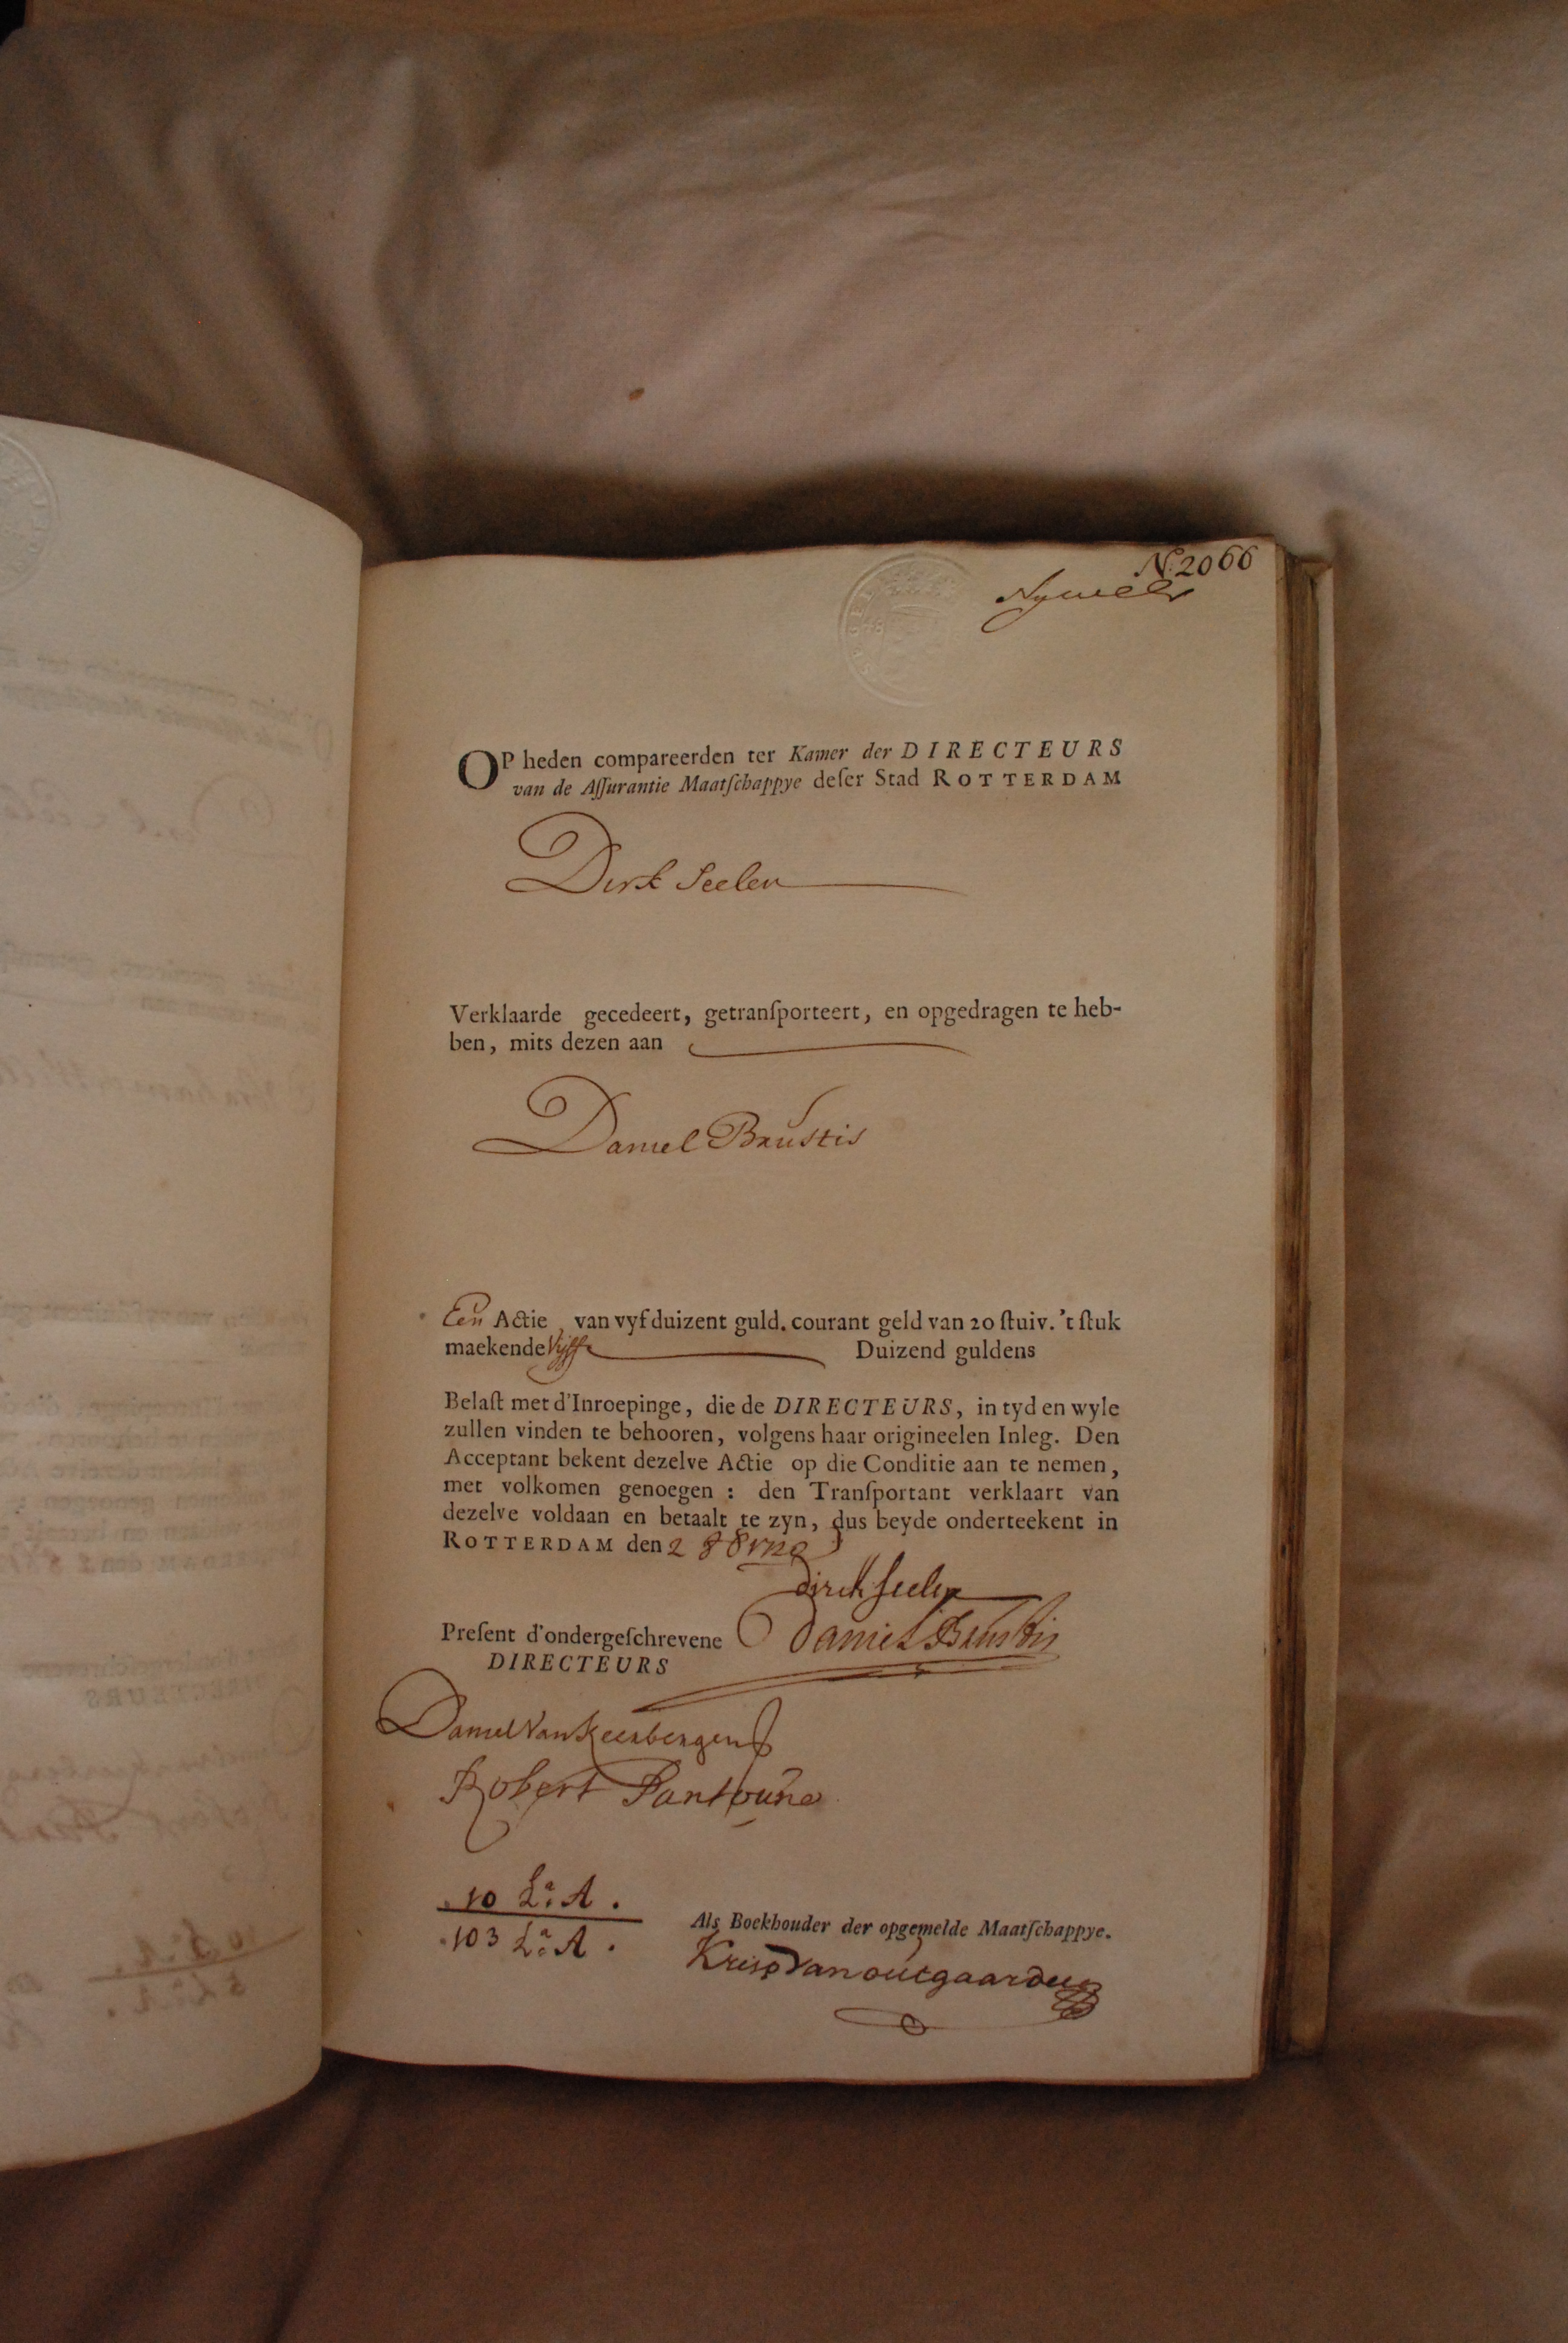 N. 2066
OP heden compareerden ter Kamer der DIRECTEURS
van de Aſſurantie Maatſchappye deſer Stad ROTTERDAM
Dirk Seelen
Verklaarde gecedeert, getranſporteert, en opgedragen te heb-
ben, mits dezen aan
Daniel Brustis
Een Actie van vyf duizent guld. courant geld van 20 ſtuiv. 't ſtuk
maekende Vyff Duizend guldens
Belaſt met d'Inroepinge, die de DIRECTEURS, in tyd en wyle
zullen vinden te behooren, volgens haar origineelen Inleg. Den
Acceptant bekent dezelve Actie op die Conditie aan te nemen,
met volkomen genoegen : den Tranſportant verklaart van
dezelve voldaan en betaalt te zyn, dus beyde onderteekent in
ROTTERDAM den 2
dirck seelen
Preſent d'ondergeſchrevene Daniel Brustis
DIRECTEURS
Daniel Van Keerbergen
Robert
10 La. A.
103 La. A.
Als Boekhouder der opgemelde Maatſchappye.
Krisp Van outgaarden